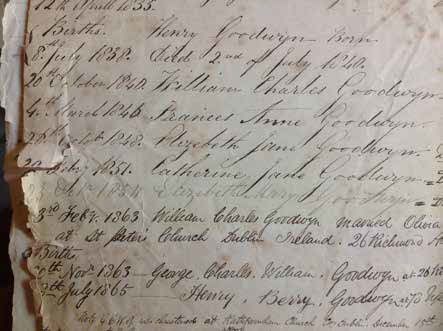 12th April 1835.
Births. Henry Goodwyn Born
8th July 1838. Died 2nd of July 1840.
20th October 1840. William Charles Goodwyn.
4th March 1846. Frances Anne Goodwyn.
1848. Elizabeth Jane Goodwyn.
1851. Catherine Jane Goodwyn =
Elizabeth Mary Goodwyn =
3rd Feby. 1863 William Charles Goodwyn married Olivia
at St Peter's Church Dublin Ireland. 26 Richmond
Births.
Novr. 1863 - George. Charles. William. Goodwyn at 26
July 1865 - Henry. Berry. Goodwyn at 73
at Rathfarnham Church Co Dublin. December 19th